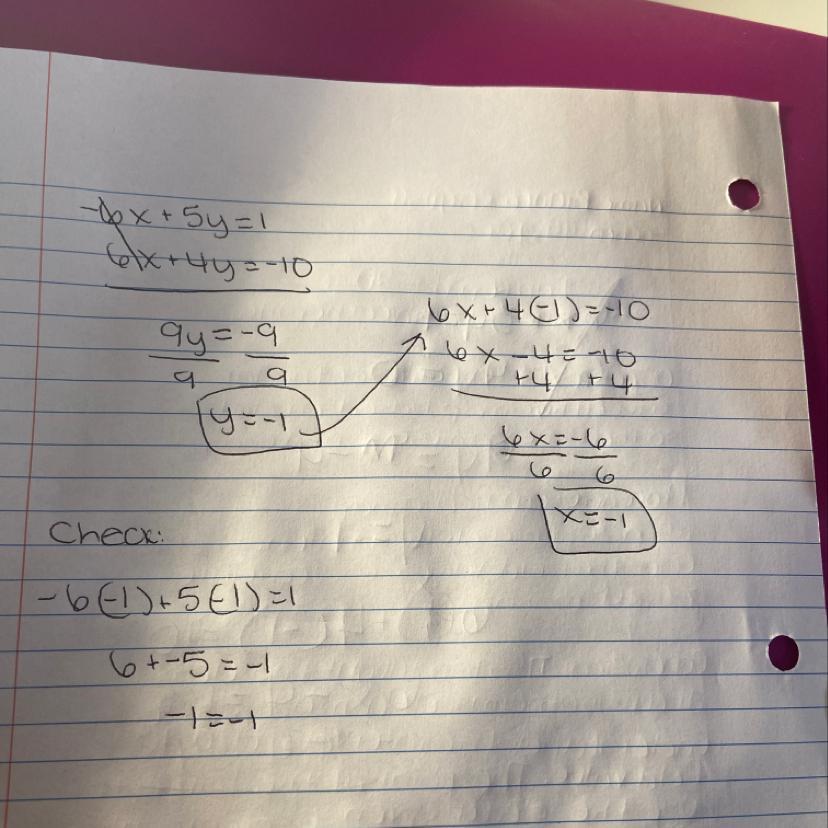 -6x + 5y = 1
6x + 4y = -10
9y = -9
9 9
y = -1
6x + 4(-1) = -10
6x - 4 = -10
+4 +4
6x = -6
6 6
x = -1
Check:
-6(-1) + 5(-1) = 1
6 + -5 = -1
-1 = -1